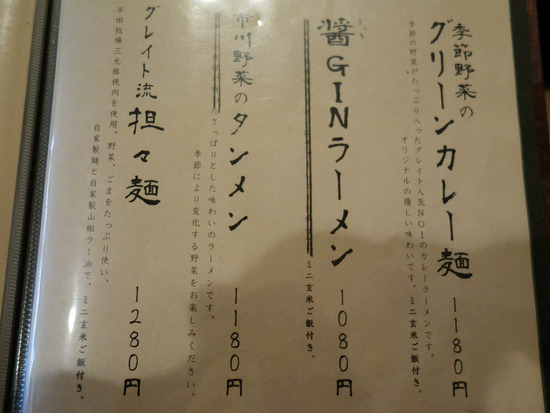 季節野菜の
グリーンカレー麺 1180円
季節の野菜がたっぷり入ったグレイト人気NO1のカレーラーメンです。
オリジナルの優しい味わいです。ミニ玄米ご飯付き。
醤GINラーメン 1080円
ミニ玄米ご飯付き。
市川野菜のタンメン 1180円
さっぱりとした味わいのラーメンです。
季節により変化する野菜をお楽しみください。
グレイト流担々麺 1280円
平田牧場三元豚挽肉を使用。野菜、ごまをたっぷり使い、
自家製麺と自家製山椒ラー油で。ミニ玄米ご飯付き。